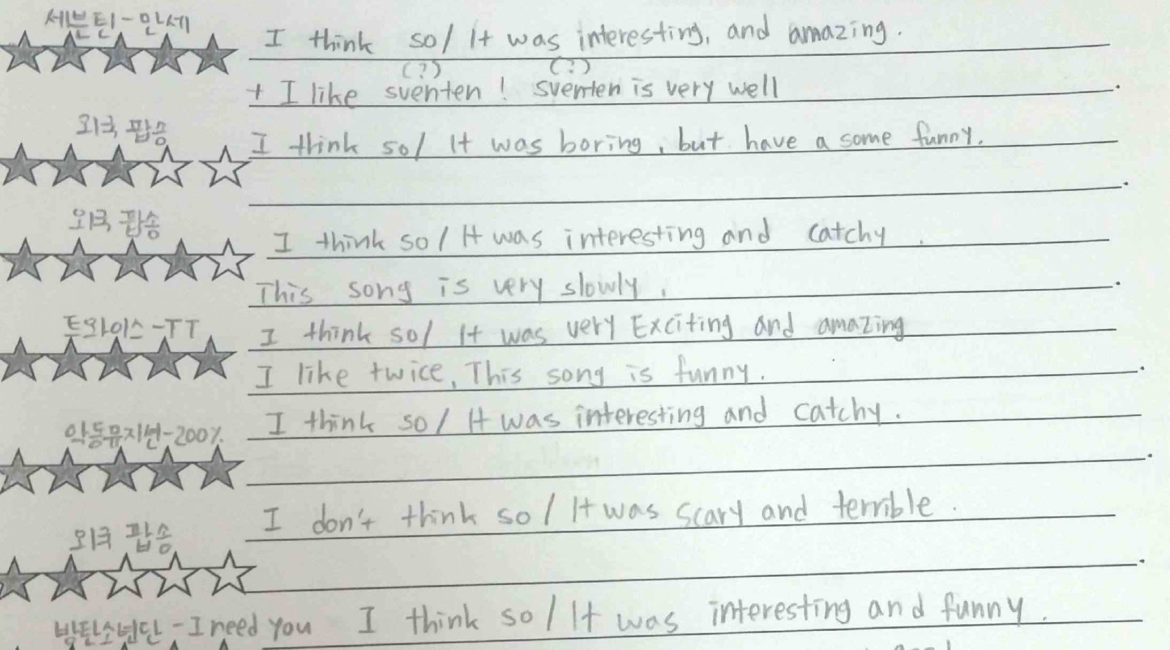 세븐틴-만세
I think so/ It was interesting, and amazing.
(?) (?)
+ I like sventen! sventen is very well.
외국 팝송
I think so/ It was boring, but have a some funny.
외국 팝송
I think so/ It was interesting and catchy.
This song is very slowly.
트와이스-TT
I think so/ It was very Exciting and amazing
I like twice, This song is funny.
악동뮤지션-200%
I think so/ It was interesting and catchy.
외국 팝송
I don't think so/ It was scary and terrible.
방탄소년단-I need you
I think so/ It was interesting and funny.